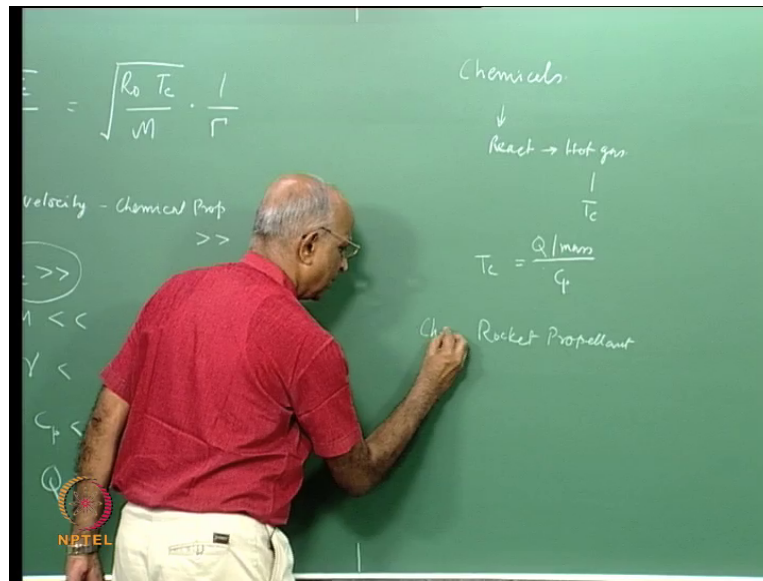 = √(R₀ Tc / M) · 1 / Γ
velocity - Chemical Prop
>>
>>
M < <
γ <
Cp <
Q
Chemicals.
↓
React → Hot gas
|
Tc
Tc = Q/mass / Cp
Rocket Propellant
NPTEL